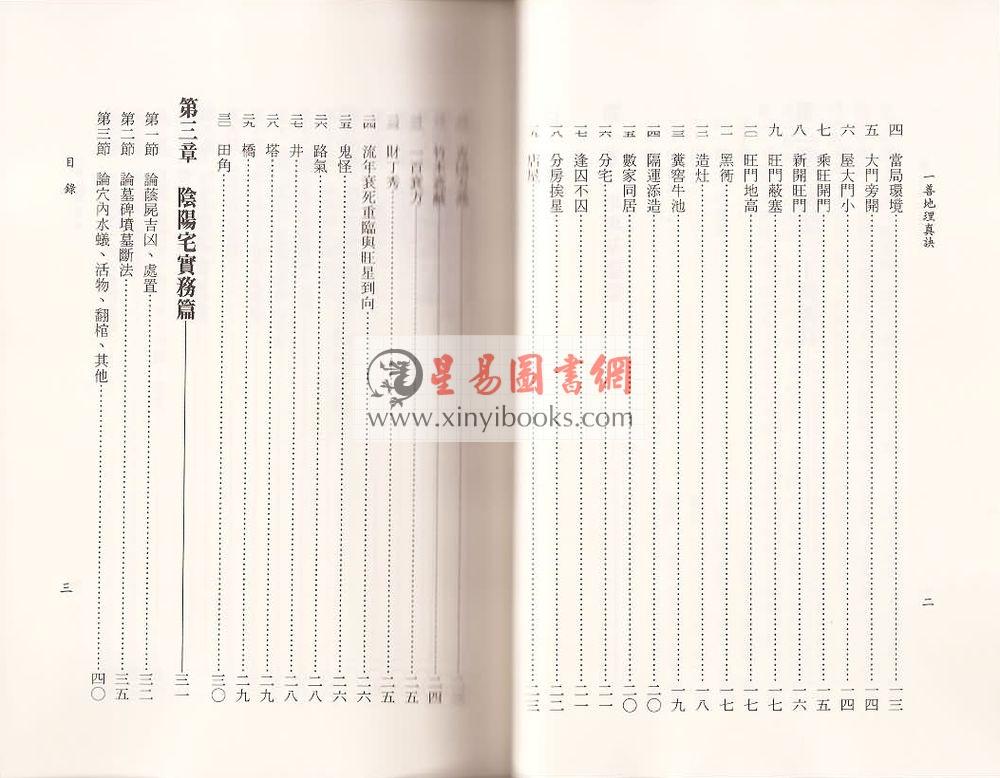 一善地理真訣
二
四 當局環境 一三
五 大門旁開 一四
六 屋大門小 一四
七 乘旺開門 一五
八 新開旺門 一六
九 旺門蔽塞 一七
一〇 旺門地高 一七
一一 黑衕 一七
一二 造灶 一八
一三 糞窖牛池 一九
一四 隔運添造 二〇
一五 數家同居 二〇
一六 分宅 二一
一七 逢囚不囚 二一
一八 分房挨星 二二
一九 店屋 二三
二四
二五
財丁秀 二五
二四 流年衰死重臨與旺星到向 二六
二五 鬼怪 二六
二六 路氣 二八
二七 井 二八
二八 塔 二九
二九 橋 二九
三〇 田角 三〇
第三章 陰陽宅實務篇 三一
第一節 論蔭屍吉凶、處置 三二
第二節 論墓碑墳墓斷法 三五
第三節 論穴內水蟻、活物、翻棺、其他 四〇
目錄
三
星易圖書網
www.xinyibooks.com